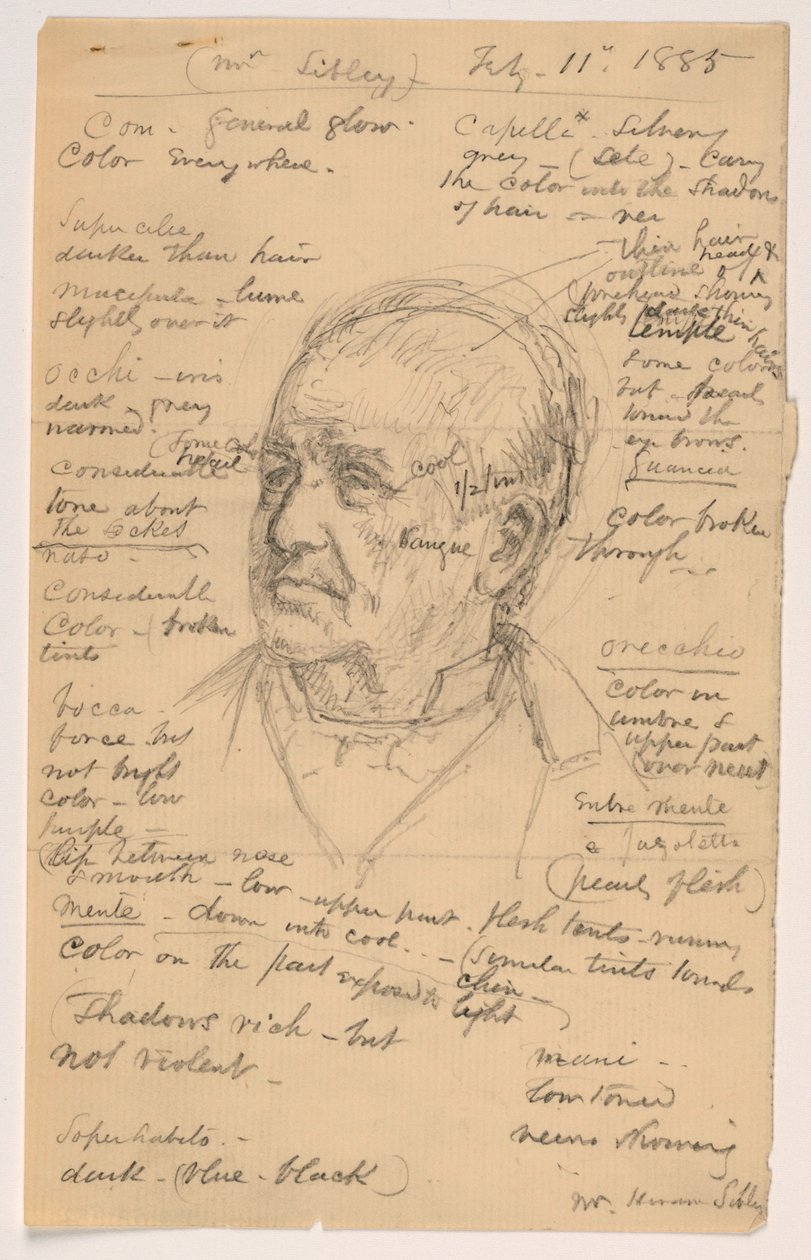 (Mr Sibley) - Feb - 11" 1885
Com - General glow -
Color Everywhere.
Capelli x - Silvery
grey - (Sete) - Carry
the color into the shadows
of hair
thin hair
outline of head &
forehead showing
slightly
thin hairs
temple
Some color
but - pearl
toward the
eye brows.
Guancia
Color broken
through
orecchio
Color in
umbre &
upper part
(over neck
Entre mente
&
(pearl flesh)
darker than hair
slightly over it
occhi - iris
dark - grey
narrow.
(Some
Considerable
tone about
the sockets
naso -
Considerable
Color - (broken
tints
cool
1/2 tint
Sangue
bocca -
force but
not bright
color - low
purple -
(Lip between nose
& mouth - low - upper part. flesh tints - running
Mente - down into cool. - (similar tints towards
chin -
Color on the part exposed to light
(Shadows rich - but
not violent -
mani -
low toned
veins showing
Soprhabito. -
dark - (blue - black)
Mr. Hiram Sibley